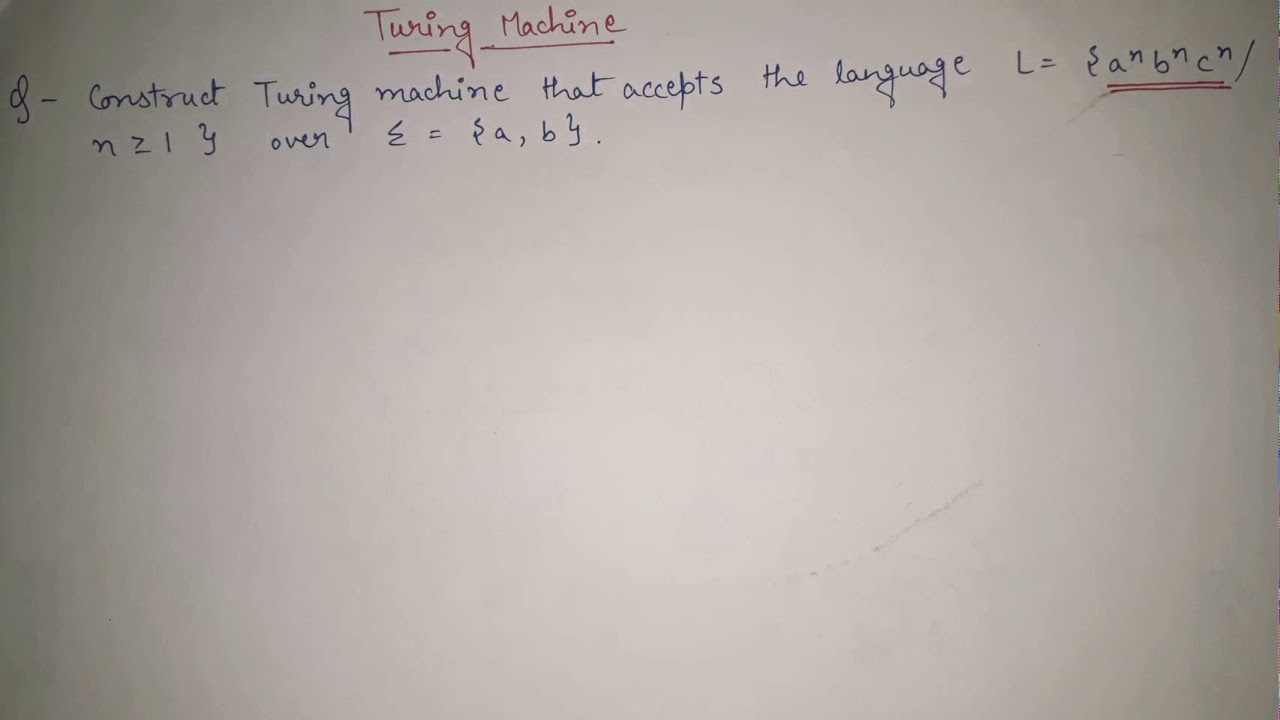 Turing Machine
Q- Construct Turing machine that accepts the language L= {aⁿbⁿcⁿ/
n ≥ 1 } over Σ = {a, b}.